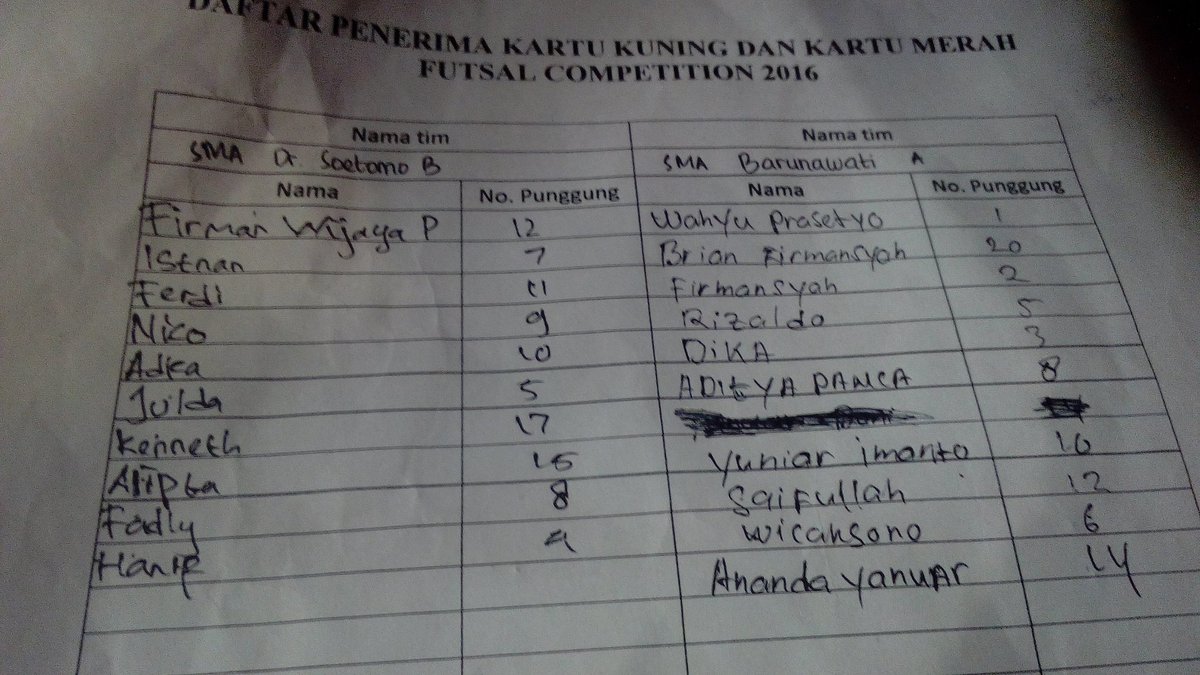 DAFTAR PENERIMA KARTU KUNING DAN KARTU MERAH
FUTSAL COMPETITION 2016
Nama tim Nama tim
SMA Dr. Soetomo B SMA Barunawati A
Nama No. Punggung Nama No. Punggung
Firman Wijaya P 12 Wahyu Prasetyo 1
Istnan 7 Brian Firmansyah 20
Ferdi 11 Firmansyah 2
Nico 9 Rizaldo 5
10 DIKA 3
Julda 5 ADITYA PANCA 8
Kenneth 17
15 Yuniar imanto 10
Fadly 8 Saifullah 12
Hanif Wicaksono 6
Ananda Yanuar 14